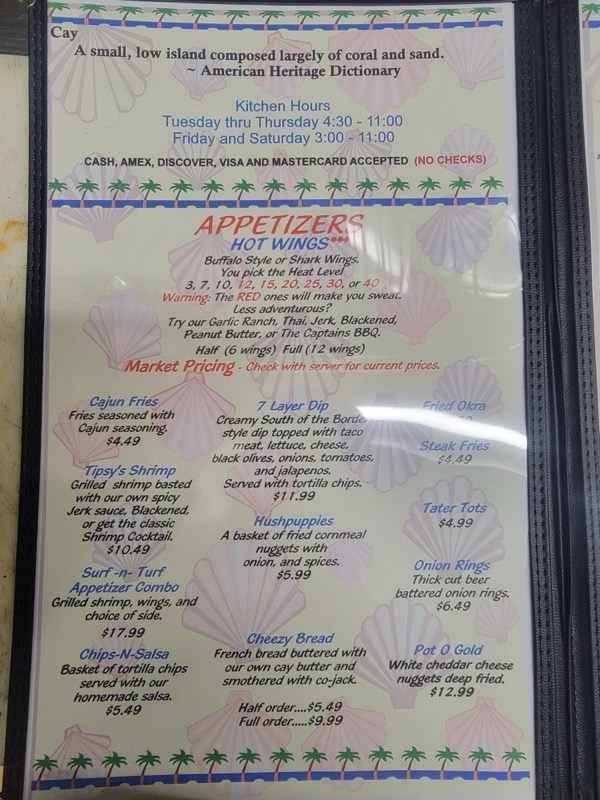 Cay
A small, low island composed largely of coral and sand.
~ American Heritage Dictionary
Kitchen Hours
Tuesday thru Thursday 4:30 - 11:00
Friday and Saturday 3:00 - 11:00
CASH, AMEX, DISCOVER, VISA AND MASTERCARD ACCEPTED (NO CHECKS)
APPETIZERS
HOT WINGS***
Buffalo Style or Shark Wings.
You pick the Heat Level
3, 7, 10, 12, 15, 20, 25, 30, or 40
Warning: The RED ones will make you sweat.
Less adventurous?
Try our Garlic Ranch, Thai, Jerk, Blackened,
Peanut Butter, or The Captains BBQ.
Half (6 wings) Full (12 wings)
Market Pricing - Check with server for current prices.
Cajun Fries
Fries seasoned with
Cajun seasoning.
$4.49
Tipsy's Shrimp
Grilled shrimp basted
with our own spicy
Jerk sauce, Blackened,
or get the classic
Shrimp Cocktail.
$10.49
Surf -n- Turf
Appetizer Combo
Grilled shrimp, wings, and
choice of side.
$17.99
Chips-N-Salsa
Basket of tortilla chips
served with our
homemade salsa.
$5.49
7 Layer Dip
Creamy South of the Border
style dip topped with taco
meat, lettuce, cheese,
black olives, onions, tomatoes,
and jalapenos.
Served with tortilla chips.
$11.99
Hushpuppies
A basket of fried cornmeal
nuggets with
onion, and spices.
$5.99
Cheezy Bread
French bread buttered with
our own cay butter and
smothered with co-jack.
Half order....$5.49
Full order.....$9.99
Fried Okra
Steak Fries
$4.49
Tater Tots
$4.99
Onion Rings
Thick cut beer
battered onion rings.
$6.49
Pot O Gold
White cheddar cheese
nuggets deep fried.
$12.99